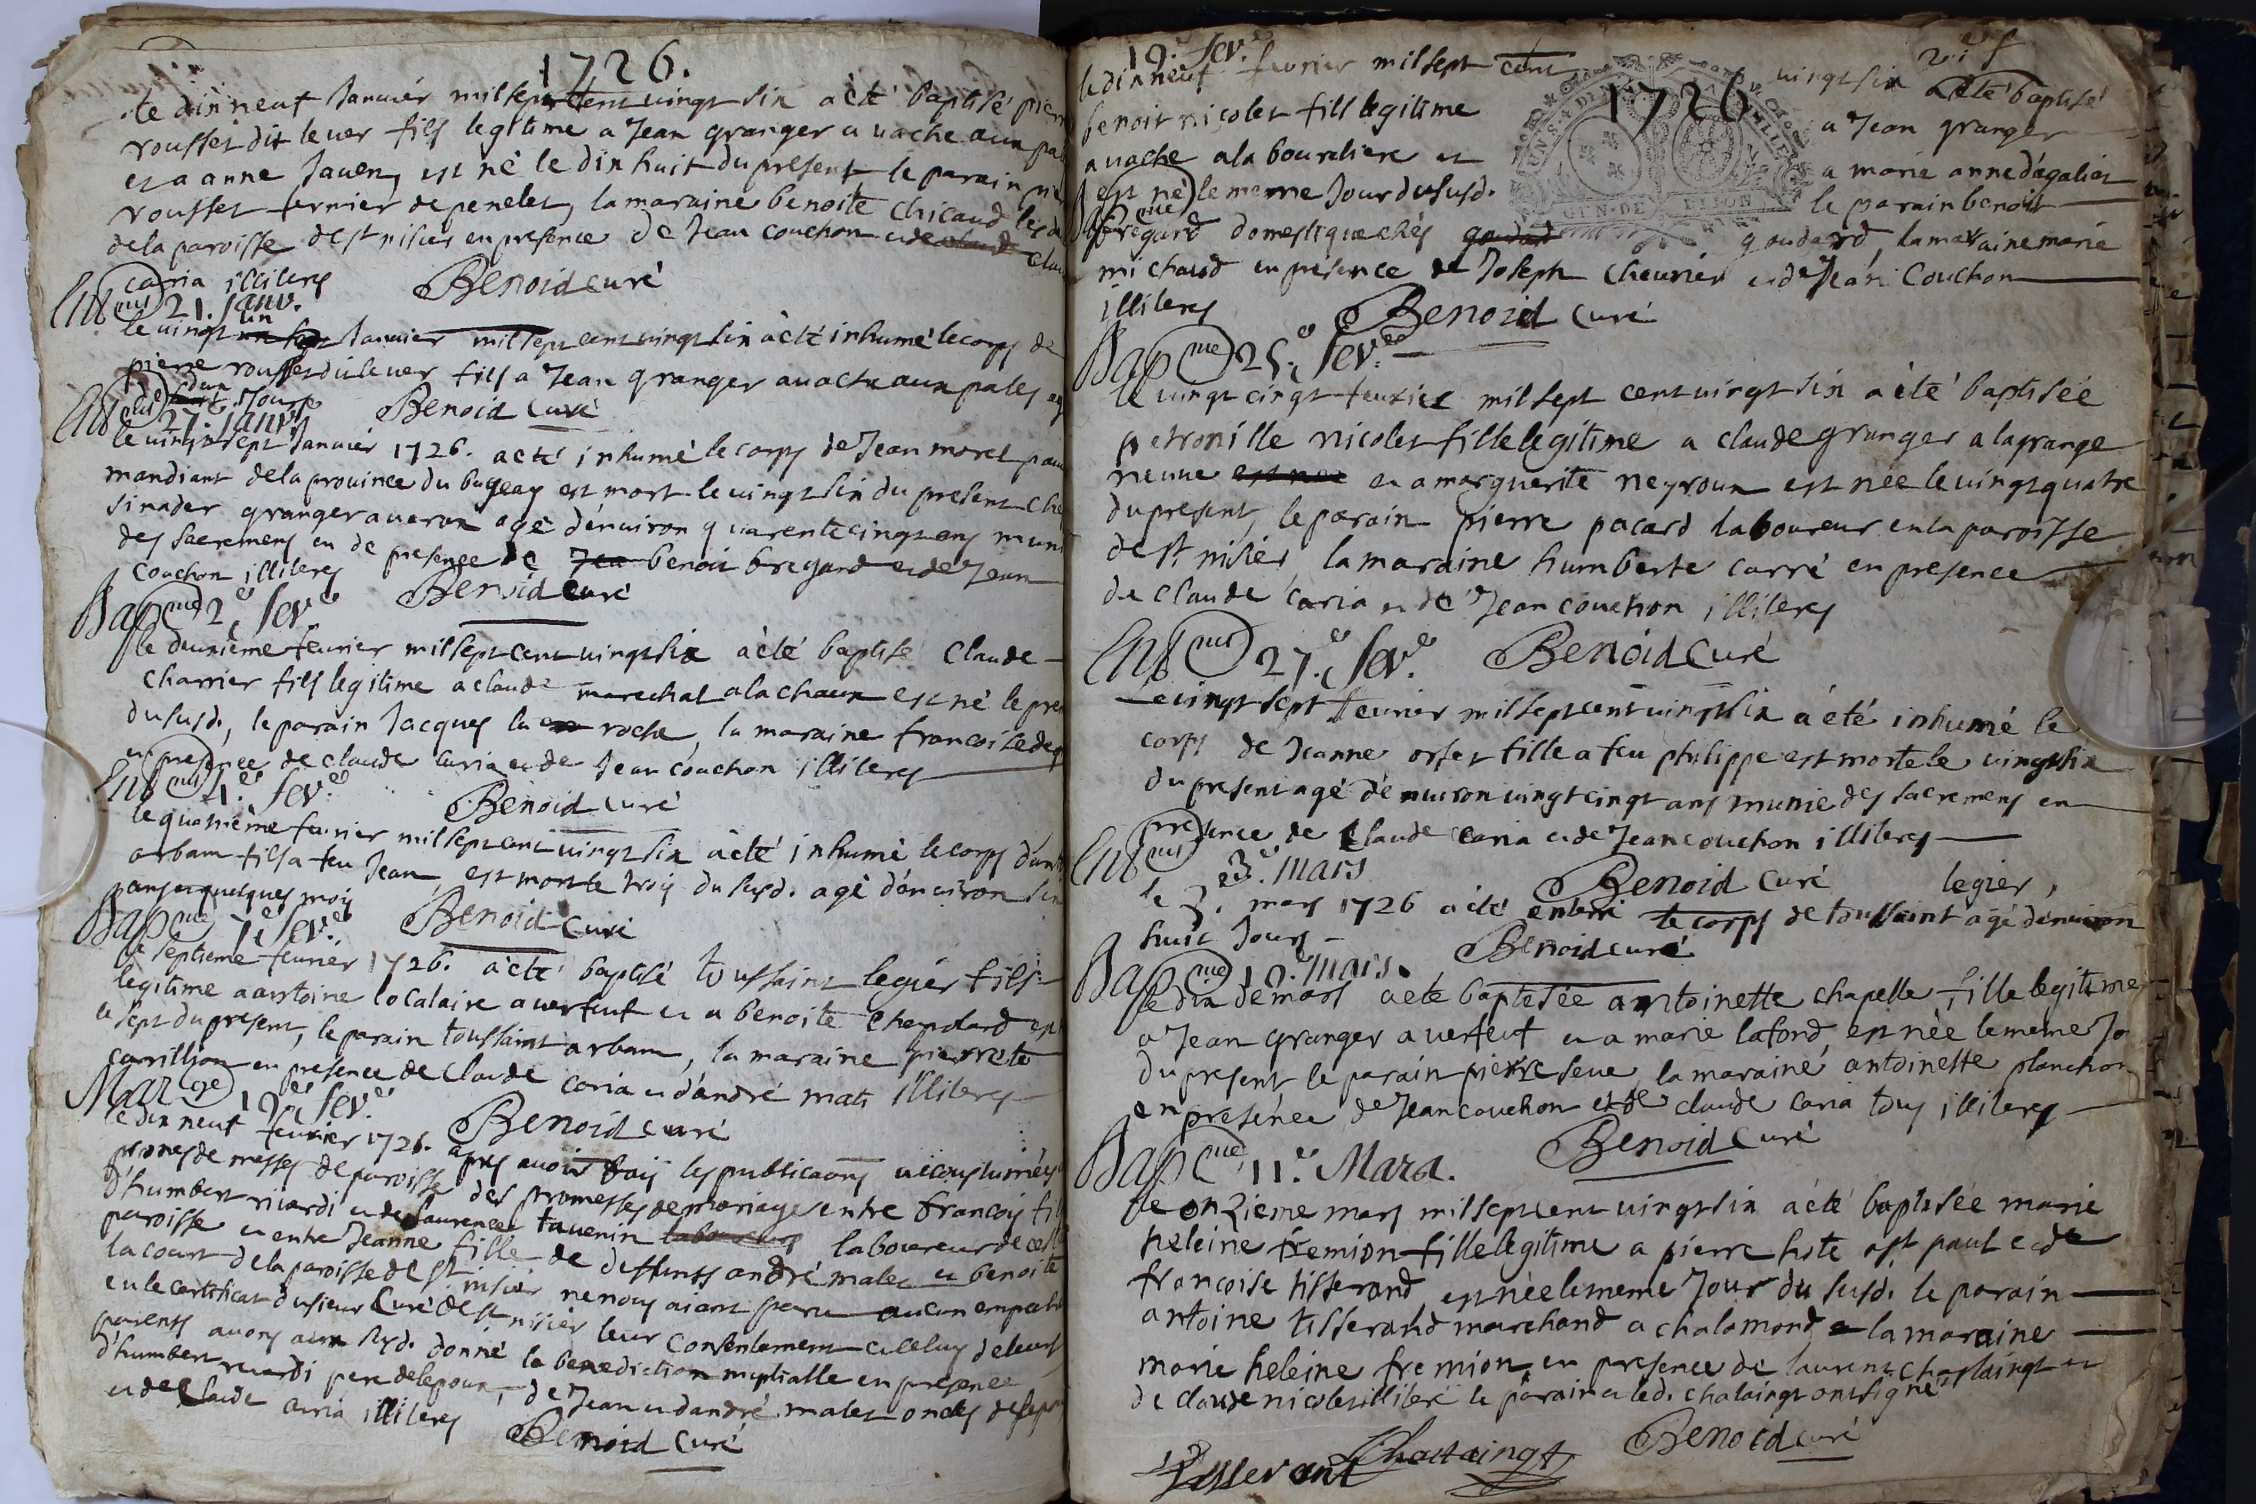 1726.
le dixneuf Janvier mil sept cent vingt six a èté baptisé pierre
rousset dit lever fils legitime a Jean granger a vache aux pales
et a anne Javen, est né le dix huit du present le parain pierre
rousset fermier de penelet, la maraine benoite chicaud les deux
de la paroisse de st nisier en presence de Jean couchon et de claude
caria illiteres Benoid curé
Ent mt 21. Janv.
le vingt un Janvier mil sept cent vingt six a èté inhumé le corps de
pierre rousset dit lever fils a Jean granger a vache aux pales agé
d'un Jour Benoid curé
Ent mt 27e Janv.
le vingt sept Janvier 1726. a èté inhumé le corps de Jean moret pauvre
mandiant de la province du bugeay est mort le vingt six du present ches
sinader granger a veron agé dénviron quarente cinq ans muni
des sacremens en de presence de Jea benoit bregard et de Jean
couchon illiteres Benoid curé
Bap me 2e fevr
le deuxième fevrier mil sept cent vingt six a èté baptisé claude
charrier fils legitime a claude marechal a la chaux est né le premier
du susd., le parain Jacques la roche, la maraine francoise
en presence de claude caria et de Jean couchon illiteres
Benoid curé
Ent mt 4e fevr
le quatrième fevrier mil sept cent vingt six a èté inhumé le corps d'
arbam fils a feu Jean, est mort le trois du susd. agé dénviron six
ans et quelques mois Benoid curé
Bap me 7e fevr
le septieme fevrier 1726. a èté baptisé toussaint legier fils
legitime a antoine localaire a verfeut et a benoite chapolard est né
le sept du present, le parain toussaint arbam, la maraine pierrete
carillion en presence de claude caria et d'andré mats illiteres
Benoid curé
Mar ge 19e fevr
le dix neuf fevrier 1726. apres avoir fais les publicaons accoustumées
prones de messes de paroisse des promesses de mariage entre francois fils
d'humbert rivardi et de laurence tavenin laboureurs laboureur de cette
paroisse et entre Jeanne fille de deffunts andré malet et benoite
la cour de la paroisse de st nisier ne nous aiant paru aucun empech
eu le certificat du sieur curé de st nisier leur consentement et celuy de leurs
parents avons aux susd. donné la benediction nuptialle en presence
d'humbert rivardi pere de lepoux, de Jean et dandré malet oncles de lepouse
et de claude caria illiteres
Benoid curé
19e fevr
21e f
1726
GEN. DE DIJON
le dixneuf fevrier mil sept cent vingt six a èté baptisé
benoit nicolet fils legitime a Jean granger
a vache a la bourdiere et a marie anne dágalier
est né le meme Jour du susd. le parain benoit
bregard domestique chés goudard goudard, la maraine marie
michaud en présence de Joseph chevrier et de Jean couchon
illiteres Benoid curé
Bap me 25e fevr
le vingt cinq fevrier mil sept cent vingt six a èté baptisée
petronille nicolet fille legitime a claude granger a la grange
neuve est née et a marguerite neyroux est née le vingt quatre
du present, le parain pierre pacard laboureur en la paroisse
de st nisier, la maraine humberte carré en presence
de claude caria et de Jean couchon illiteres
Benoid curé
Ent mt 27e fevr
le vingt sept fevrier mil sept cent vingt six a été inhumé le
corps de Jeanne orset fille a feu philippe est morte le vingt six
du present agé dénviron vingt cinq ans munie des sacremens en
presence de claude caria et de Jean couchon illiteres
Benoid curé
Ent mt 3e mars
le 3. mars 1726 a èté enterré le corps de toussaint legier, agé dénviron
huit Jours Benoid curé
Bap me 10e mars.
le dix de mars a eté baptisée antoinette chapelle, fille legitime
a Jean granger a verfeut et a marie lafond, est née le meme Jo
du present le parain pierre seve, la maraine antoinette planchon
en presénce de Jean couchon et de claude caria tous illiteres
Benoid curé
Bap me 11e Mars.
le onzieme mars mil sept cent vingt six a èté baptisée marie
heleine fremion fille legitime a pierre hote a st paul et de
francoise tisserand est née le meme Jour du susd. le parain
antoine tisserand marchand a chalamond et la maraine
marie heleine fremion en presence de laurent chastaingt et
de claude nicolet illiteré le parain et led. chataingt ont signé
Benoid curé
Tisserant Chastaingt